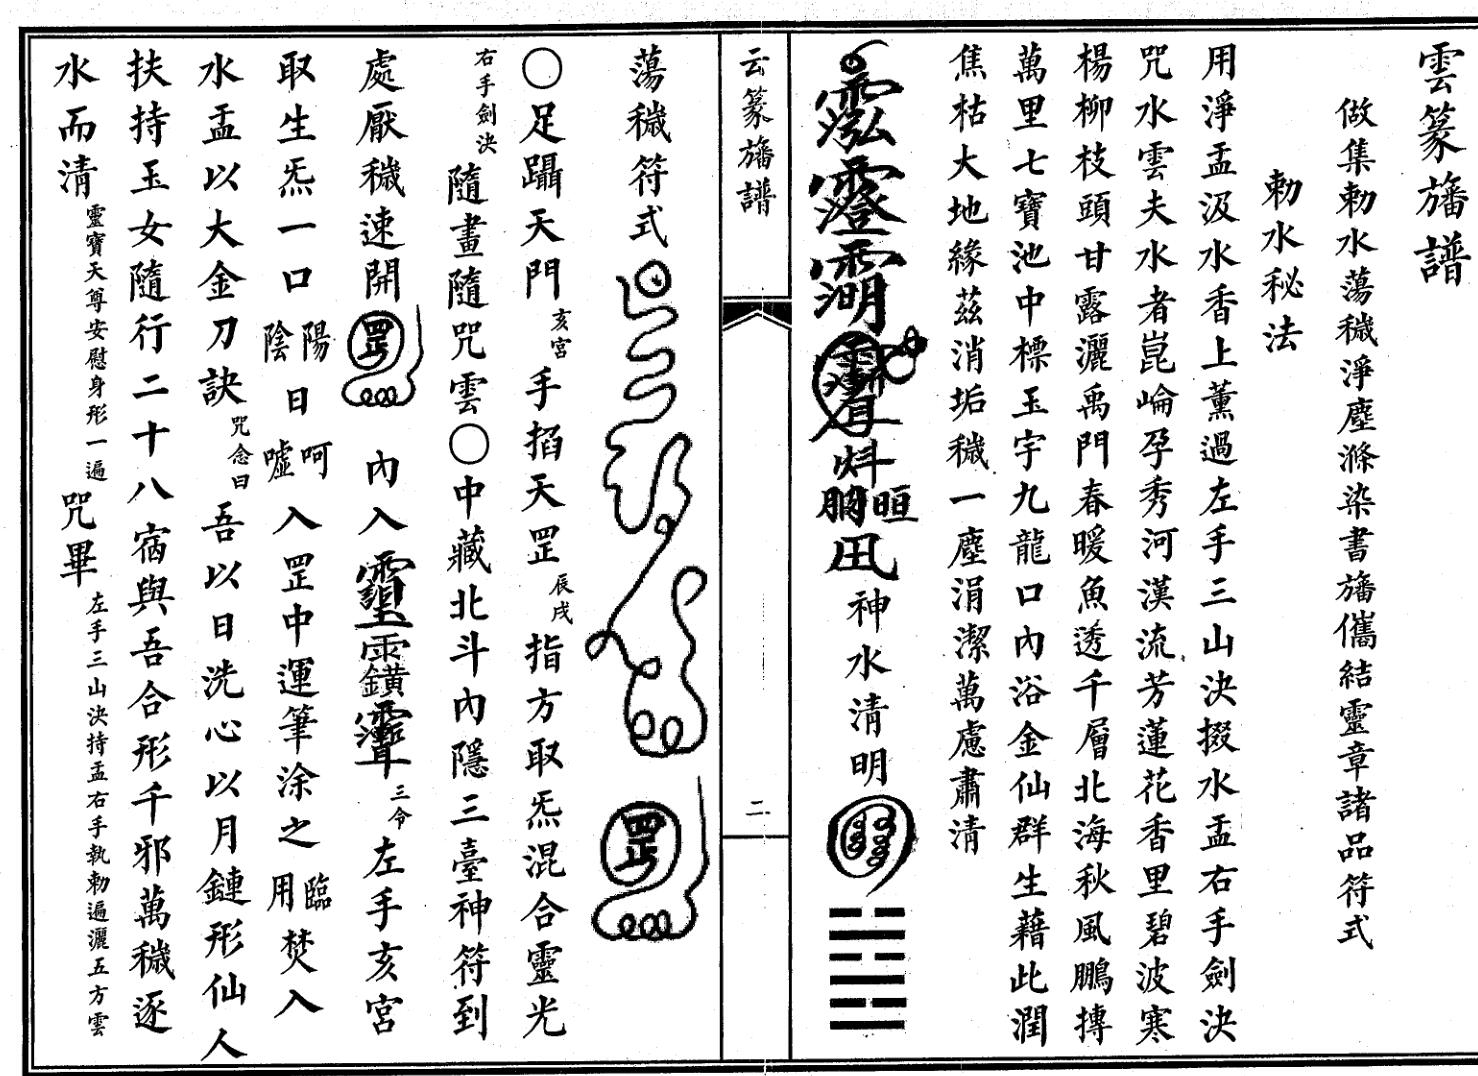 雲篆旛譜
做集勅水蕩穢淨塵滌染書旛儶結靈章諸品符式
勅水秘法
用淨盂汲水香上薰過左手三山決掇水盂右手劍決
咒水雲夫水者崑崙孕秀河漢流芳蓮花香里碧波寒
楊柳枝頭甘露灑禹門春暖魚透千層北海秋風鵬摶
萬里七寶池中標玉宇九龍口內浴金仙群生藉此潤
焦枯大地緣茲消垢穢一塵涓潔萬慮肅清
神水清明
云篆旛譜
二
蕩穢符式
罡
〇足躡天門亥宮手掐天罡辰戌指方取炁混合靈光
右手劍決隨畫隨咒雲〇中藏北斗內隱三臺神符到
處厭穢速開罡內入三令左手亥宮
取生炁一口陽陰日呵噓入罡中運筆涂之臨用焚入
水盂以大金刀訣咒念曰吾以日洗心以月鍊形仙人
扶持玉女隨行二十八宿與吾合形千邪萬穢逐
水而清靈寶天尊安慰身形一遍咒畢左手三山決持盂右手執勅遍灑五方雲